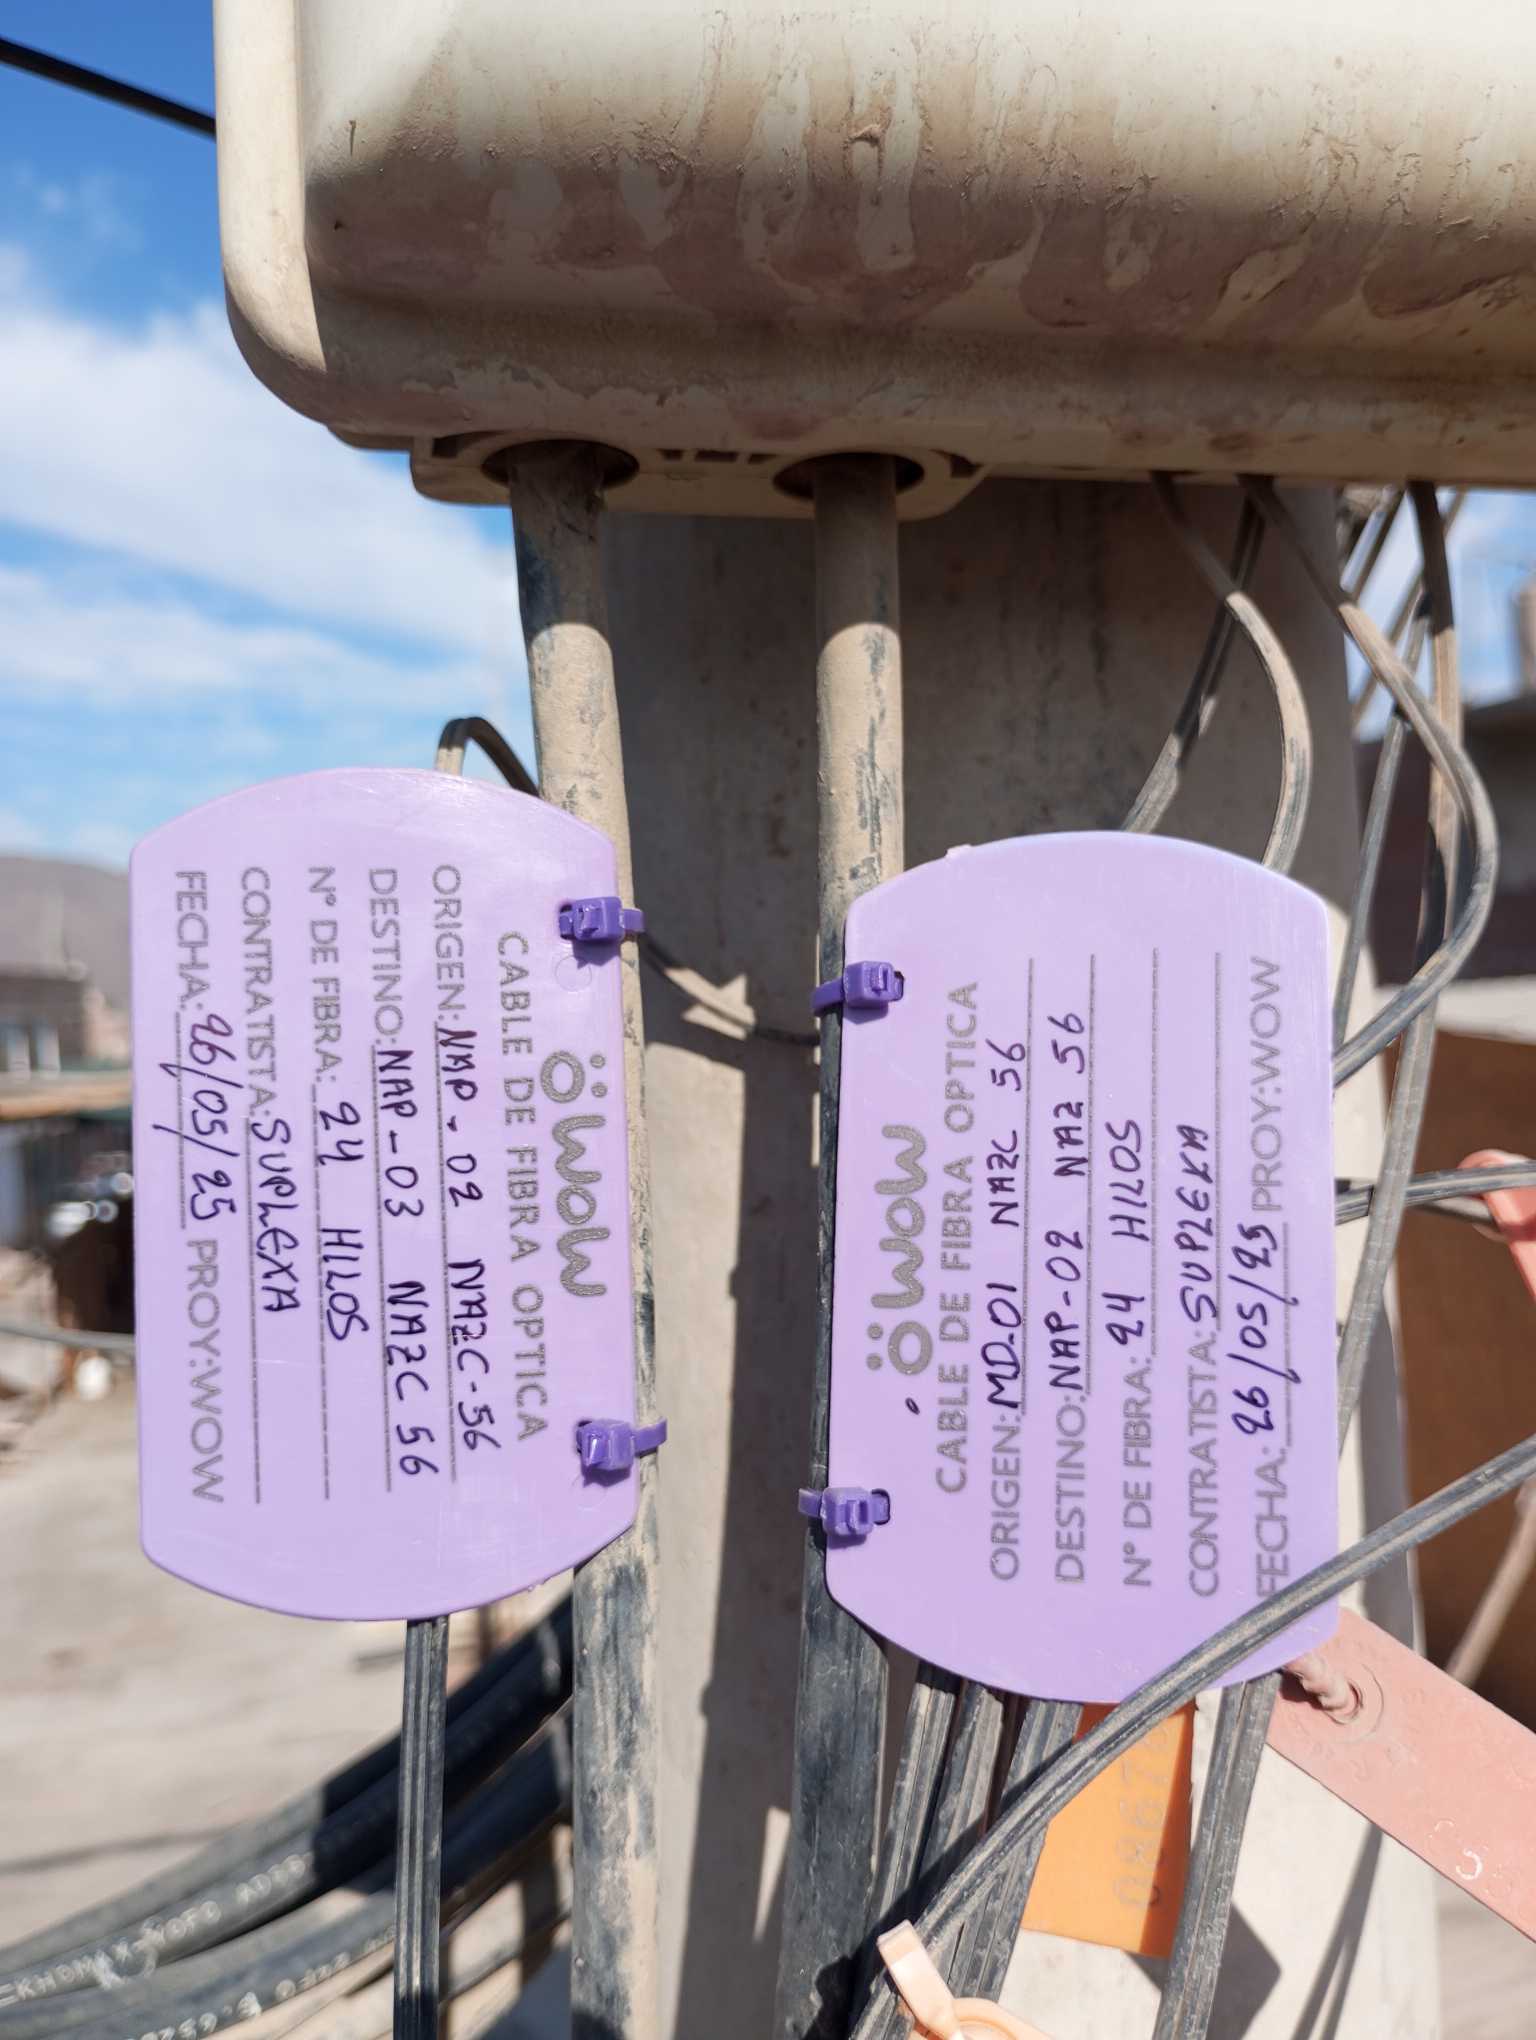 wow
CABLE DE FIBRA OPTICA
ORIGEN: NAP-02 NAZC-56
DESTINO: NAP-03 NAZC 56
N° DE FIBRA: 24 HILOS
CONTRATISTA: SUPLEXA
FECHA: 26/05/25 PROY:WOW
wow
CABLE DE FIBRA OPTICA
ORIGEN: MD-01 NAZC 56
DESTINO: NAP-02 NAZ 56
N° DE FIBRA: 24 HILOS
CONTRATISTA: SUPLEXA
FECHA: 26/05/25 PROY:WOW